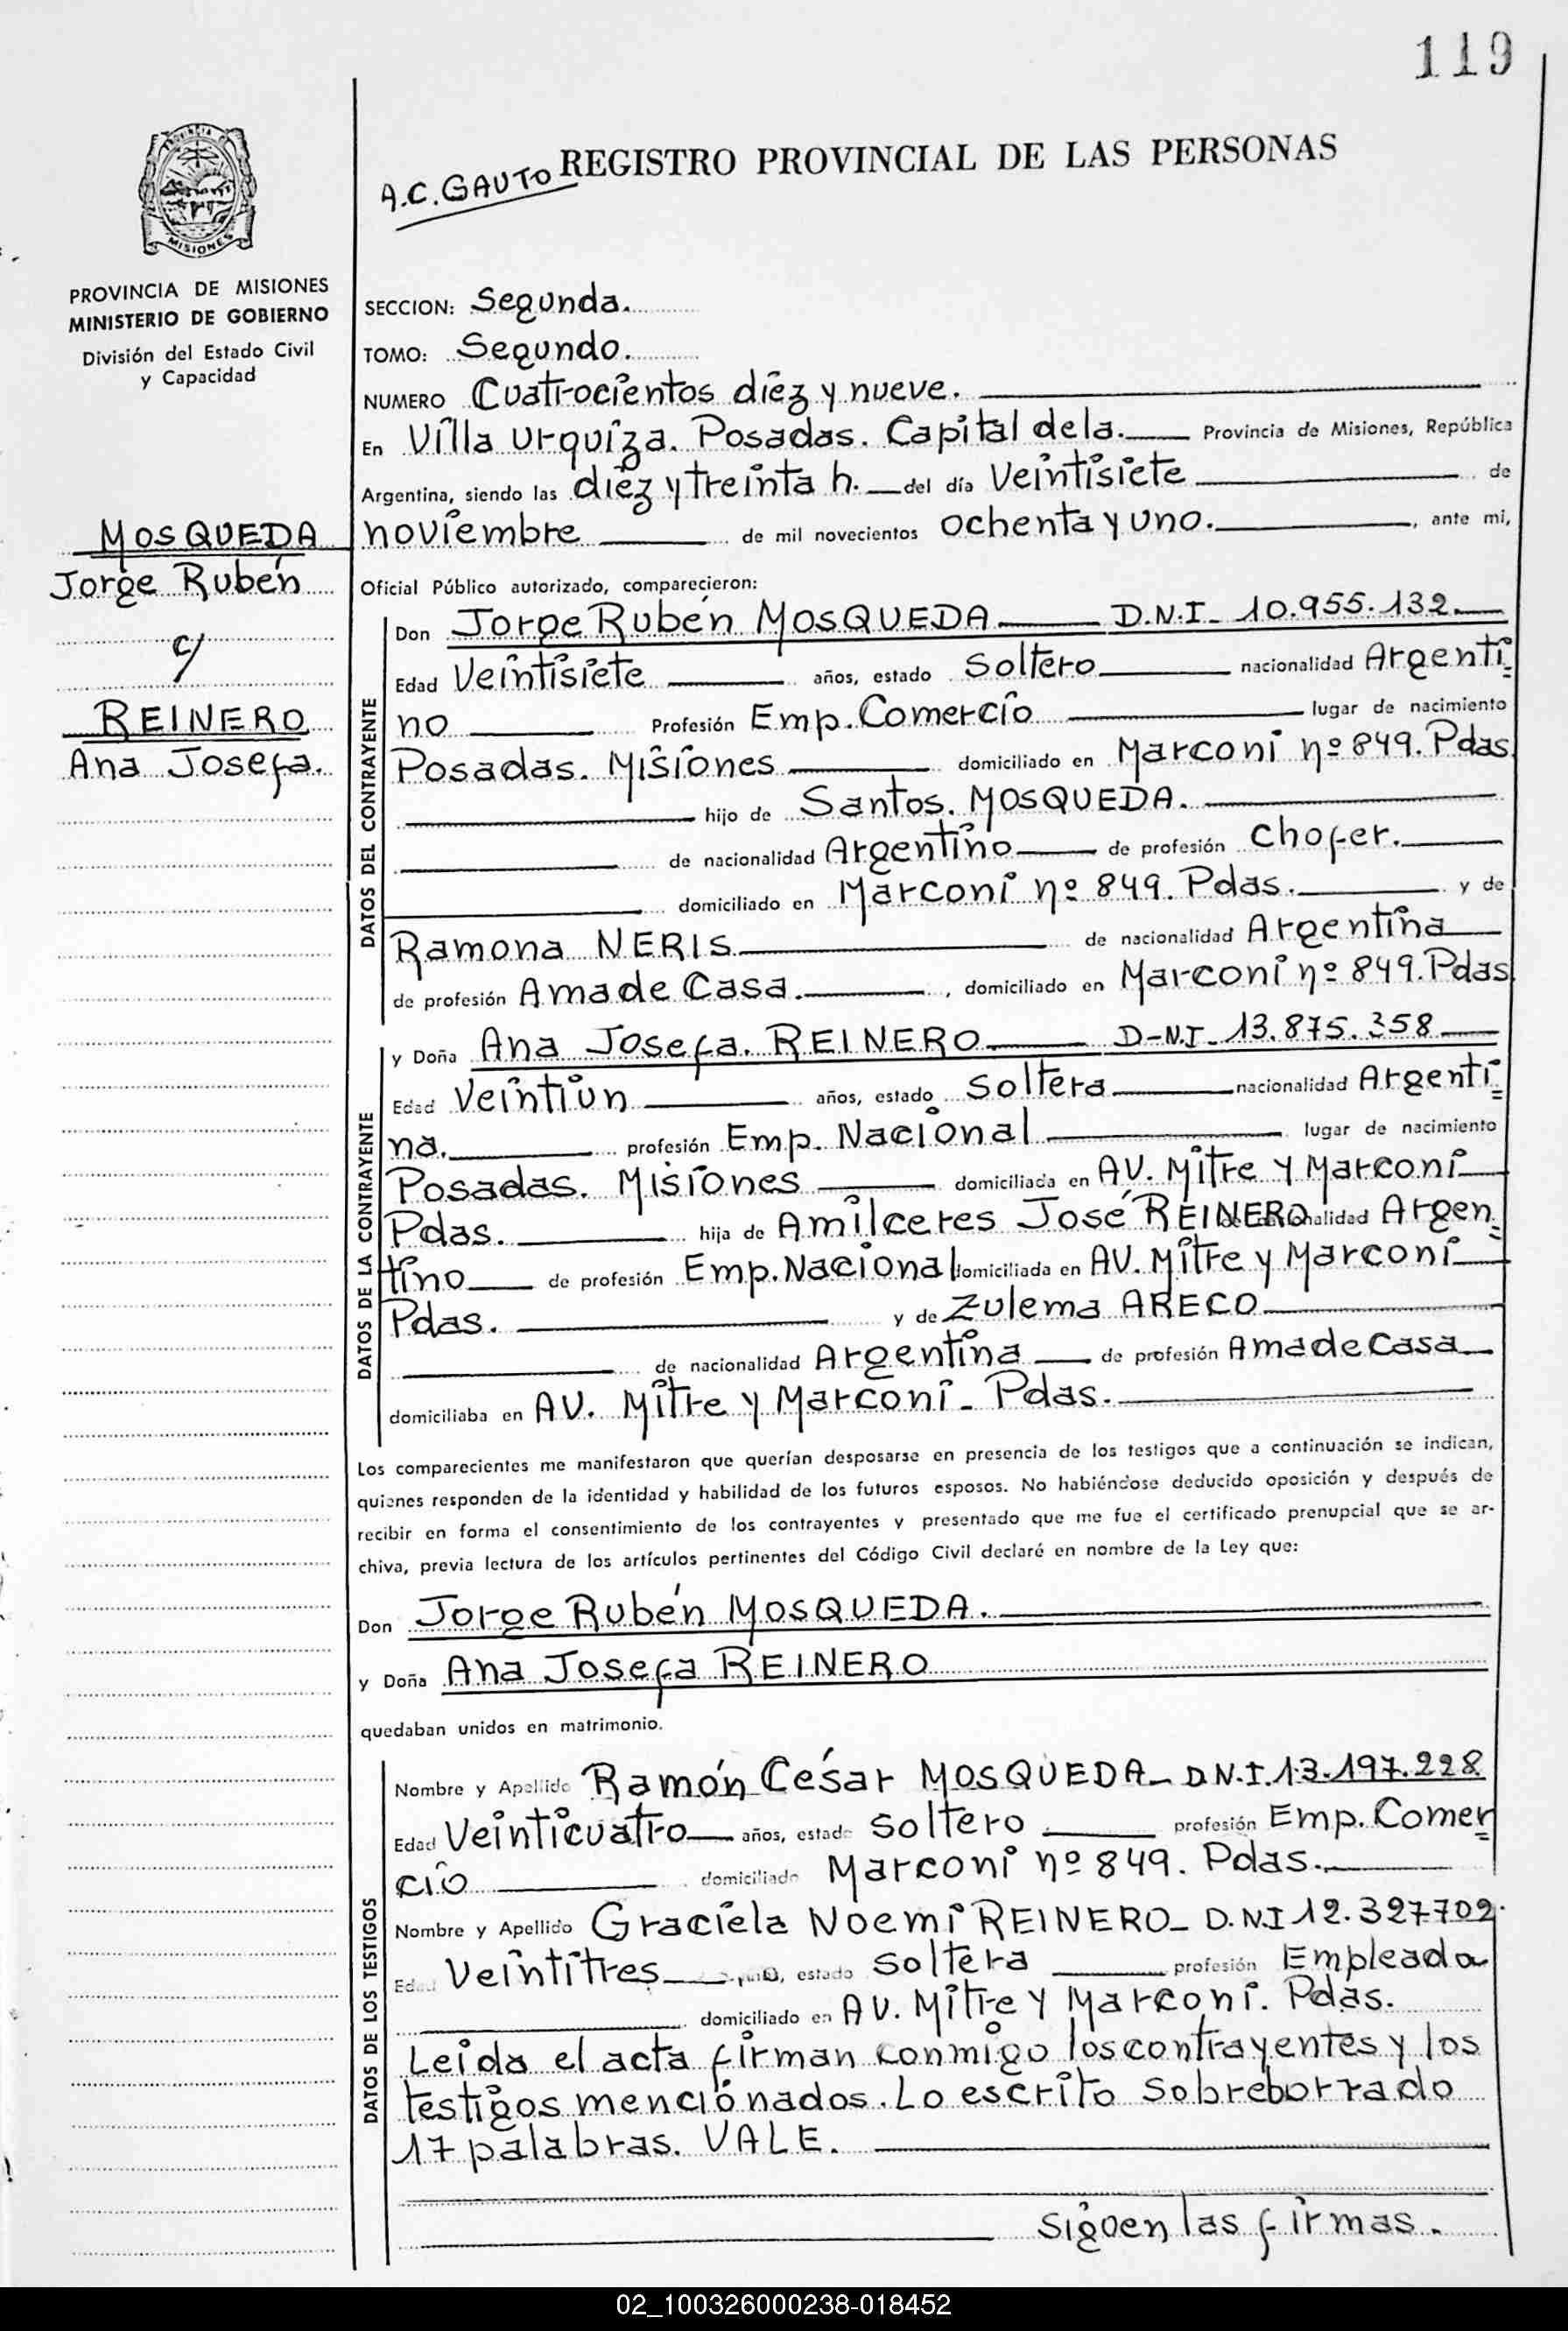 119
REGISTRO PROVINCIAL DE LAS PERSONAS
A.C. GAUTO
PROVINCIA DE MISIONES
MINISTERIO DE GOBIERNO
División del Estado Civil
y Capacidad
MOSQUEDA
Jorge Rubén
c/
REINERO
Ana Josefa.
SECCION: Segunda.
TOMO: Segundo.
NUMERO Cuatrocientos diéz y nueve.
En Villa Urquiza. Posadas. Capital de la. Provincia de Misiones, República
Argentina, siendo las diéz y treinta h. del día Veintisiete de
noviembre de mil novecientos ochenta y uno. , ante mi,
Oficial Público autorizado, comparecieron:
DATOS DEL CONTRAYENTE
Don Jorge Rubén MOSQUEDA D.N.I- 10.955.132
Edad Veintisiete años, estado Soltero nacionalidad Argenti=
no Profesión Emp. Comercio lugar de nacimiento
Posadas. Misiones domiciliado en Marconi nº 849. Pdas.
hijo de Santos. MOSQUEDA.
de nacionalidad Argentino de profesión Chofer.
domiciliado en Marconi nº 849. Pdas. y de
Ramona NERIS de nacionalidad Argentina
de profesión Ama de Casa. , domiciliado en Marconi nº 849. Pdas
DATOS DE LA CONTRAYENTE
y Doña Ana Josefa. REINERO D-N.I- 13.875.358
Edad Veintiún años, estado Soltera nacionalidad Argenti=
na. profesión Emp. Nacional lugar de nacimiento
Posadas. Misiones domiciliada en AV. Mitre y Marconi
Pdas. hija de Amilceres José REINERO de nacionalidad Argen=
tino de profesión Emp. Nacional domiciliada en AV. Mitre y Marconi
Pdas. y de Zulema ARECO
de nacionalidad Argentina de profesión Ama de Casa
domiciliaba en AV. Mitre y Marconi - Pdas.
Los comparecientes me manifestaron que querían desposarse en presencia de los testigos que a continuación se indican,
quienes responden de la identidad y habilidad de los futuros esposos. No habiéndose deducido oposición y después de
recibir en forma el consentimiento de los contrayentes y presentado que me fue el certificado prenupcial que se ar-
chiva, previa lectura de los artículos pertinentes del Código Civil declaré en nombre de la Ley que:
Don Jorge Rubén MOSQUEDA.
y Doña Ana Josefa REINERO
quedaban unidos en matrimonio.
DATOS DE LOS TESTIGOS
Nombre y Apellido Ramón César MOSQUEDA- D.N.I. 13.197.228
Edad Veinticuatro años, estado Soltero profesión Emp. Comer=
cio domiciliado Marconi nº 849. Pdas.
Nombre y Apellido Graciela Noemi REINERO- D.N.I 12.327702.
Edad Veintitres años, estado Soltera profesión Empleada
domiciliado en AV. Mitre y Marconi. Pdas.
Leida el acta firman conmigo los contrayentes y los
testigos mencionados. Lo escrito Sobreborrado
17 palabras. VALE.
Siguen las firmas.
02_100326000238-018452